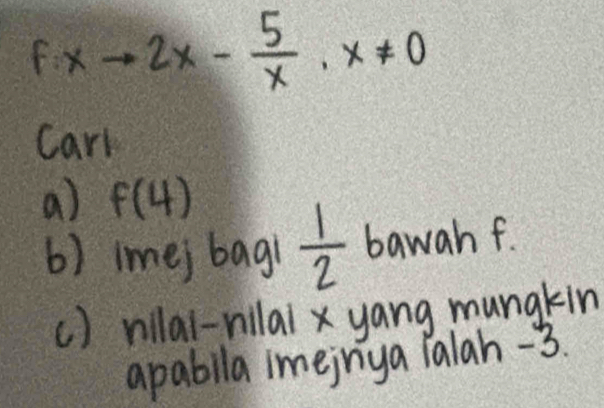 f: x → 2x - 5/x , x ≠ 0
Cari
a) f(4)
b) imej bagi 1/2 bawah f.
c) nilai-nilai x yang mungkin
apabila imejnya ialah -3.